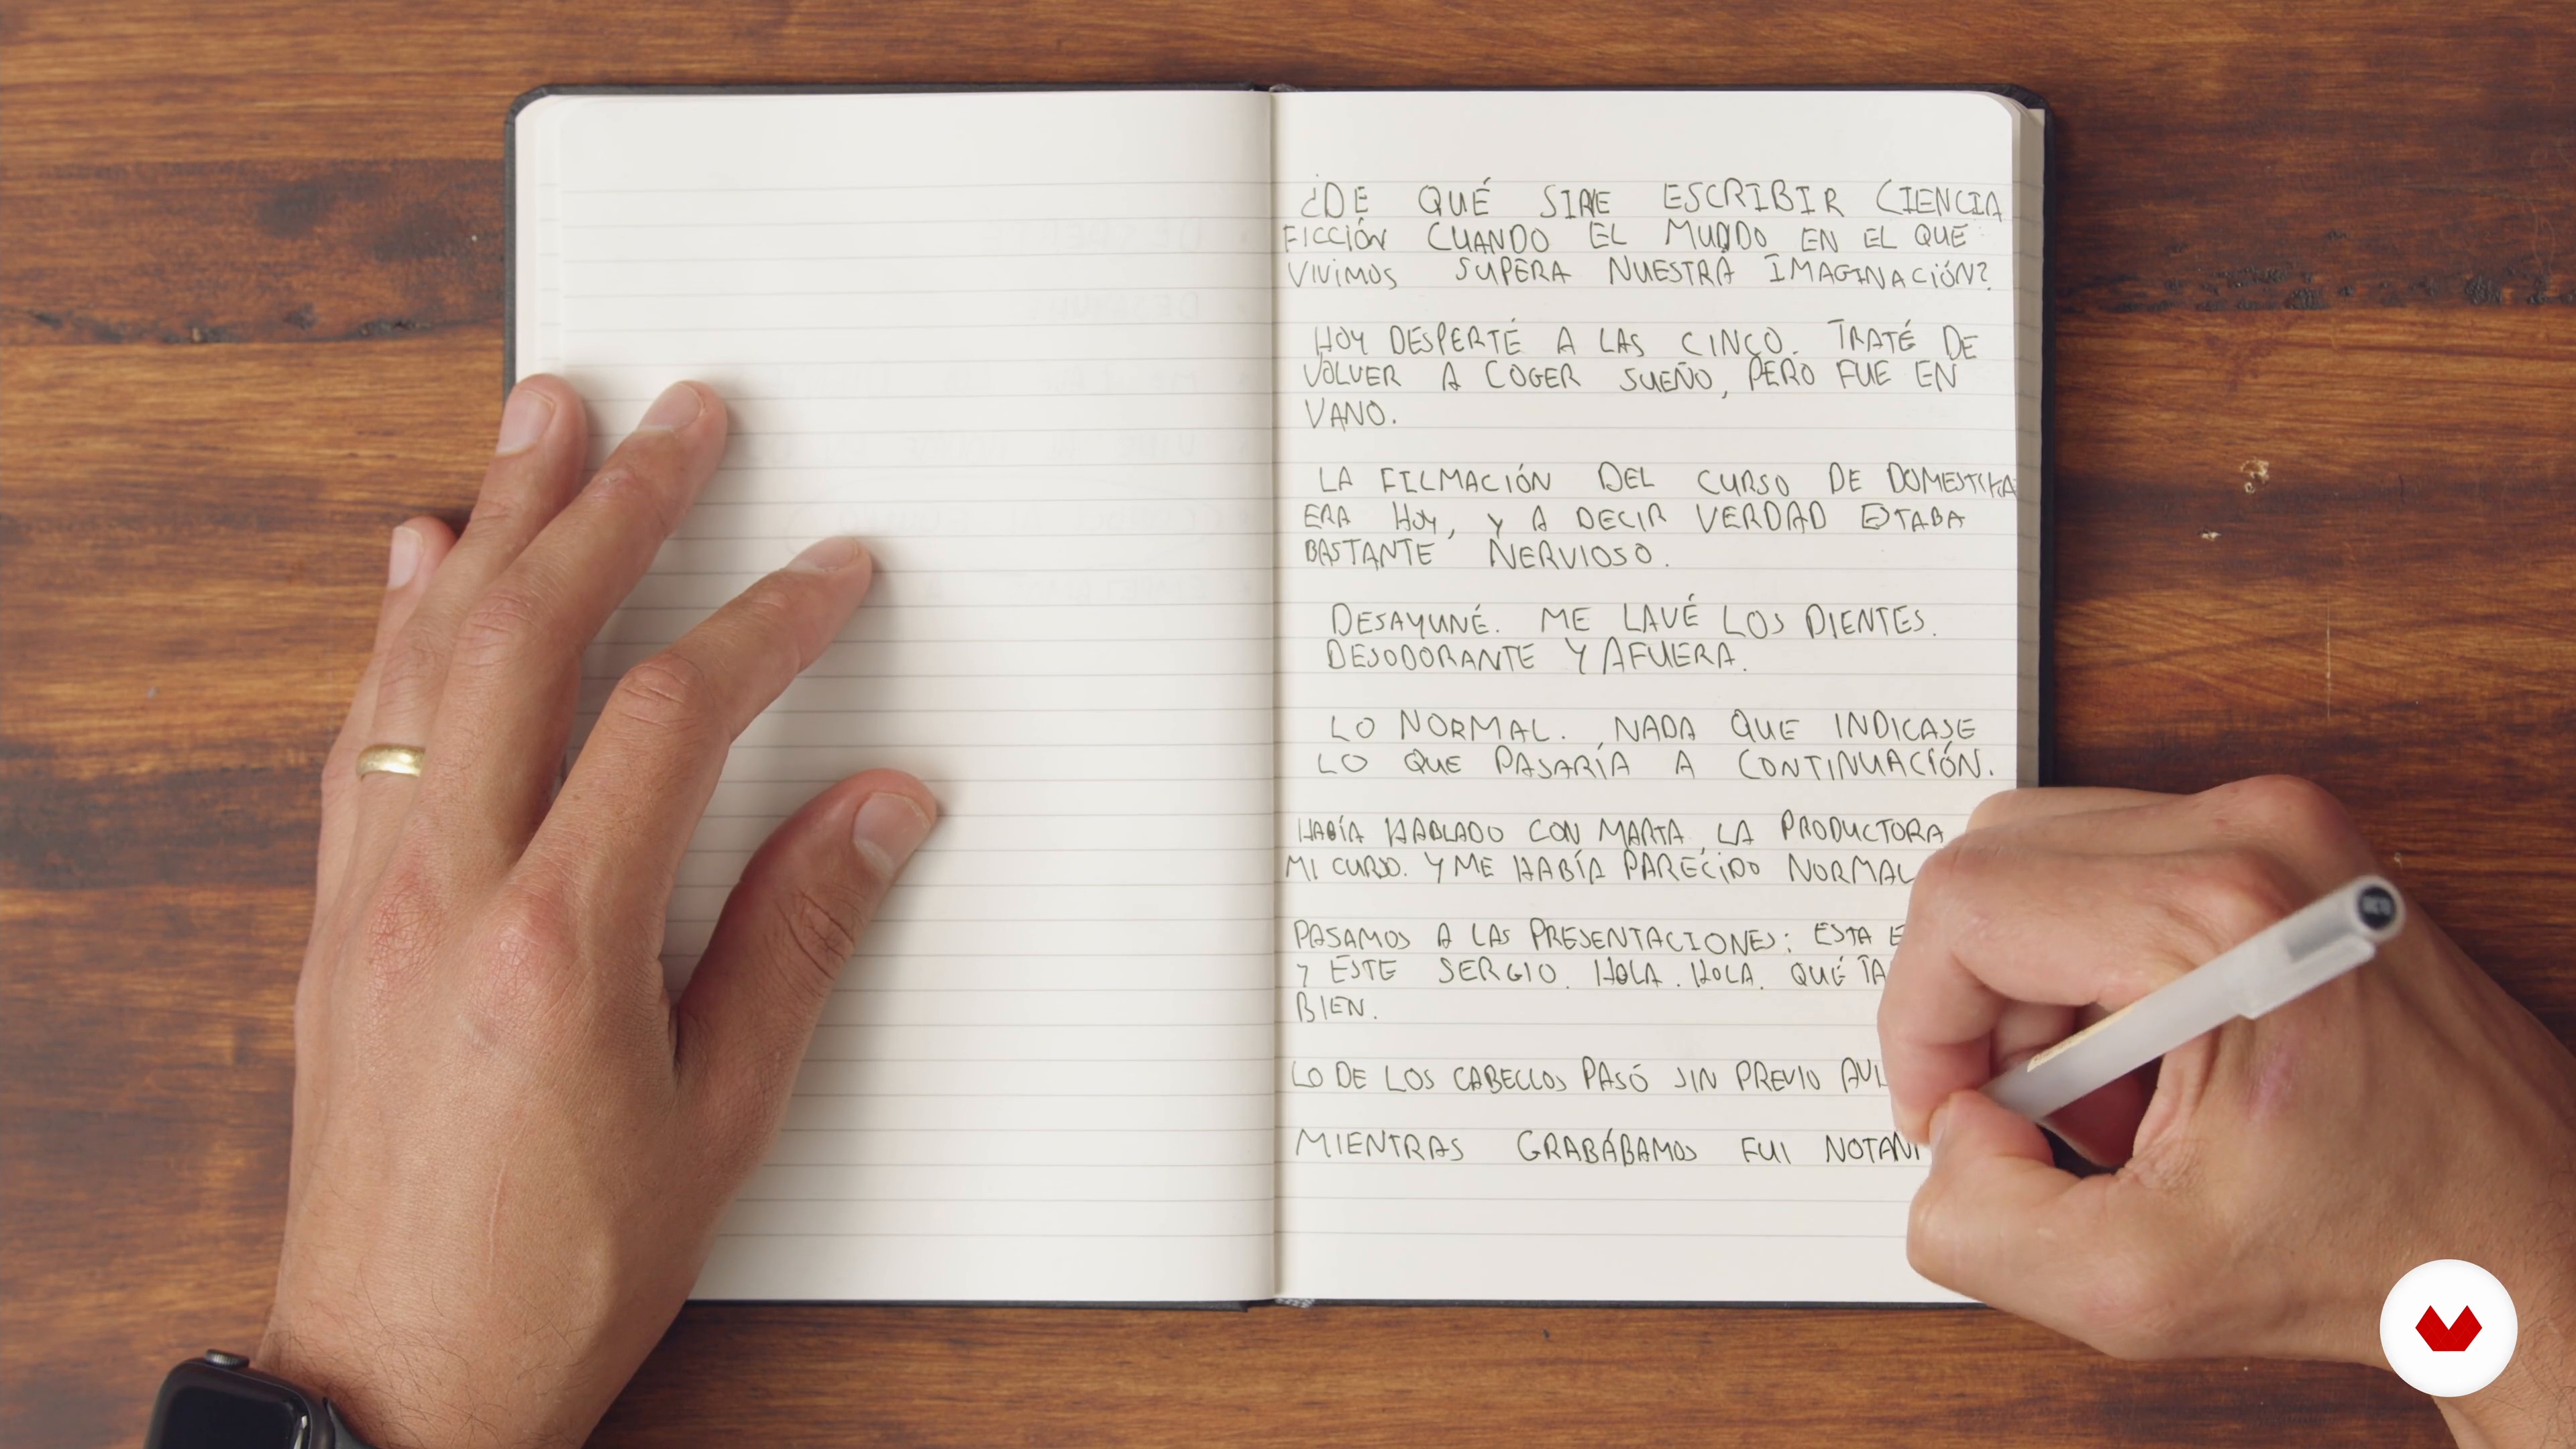 ¿DE QUÉ SIRVE ESCRIBIR CIENCIA
FICCIÓN CUANDO EL MUNDO EN EL QUE
VIVIMOS SUPERA NUESTRA IMAGINACIÓN?
HOY DESPERTÉ A LAS CINCO. TRATÉ DE
VOLVER A COGER SUEÑO, PERO FUE EN
VANO.
LA FILMACIÓN DEL CURSO DE DOMESTIKA
ERA HOY, Y A DECIR VERDAD ESTABA
BASTANTE NERVIOSO.
DESAYUNÉ. ME LAVÉ LOS DIENTES.
DESODORANTE Y AFUERA.
LO NORMAL. NADA QUE INDICASE
LO QUE PASARÍA A CONTINUACIÓN.
HABÍA HABLADO CON MARTA, LA PRODUCTORA
MI CURSO. Y ME HABÍA PARECIDO NORMAL
PASAMOS A LAS PRESENTACIONES: ESTA E
Y ESTE SERGIO. HOLA. HOLA. QUÉ TA
BIEN.
LO DE LOS CABELLOS PASÓ SIN PREVIO AVI
MIENTRAS GRABÁBAMOS FUI NOTAN